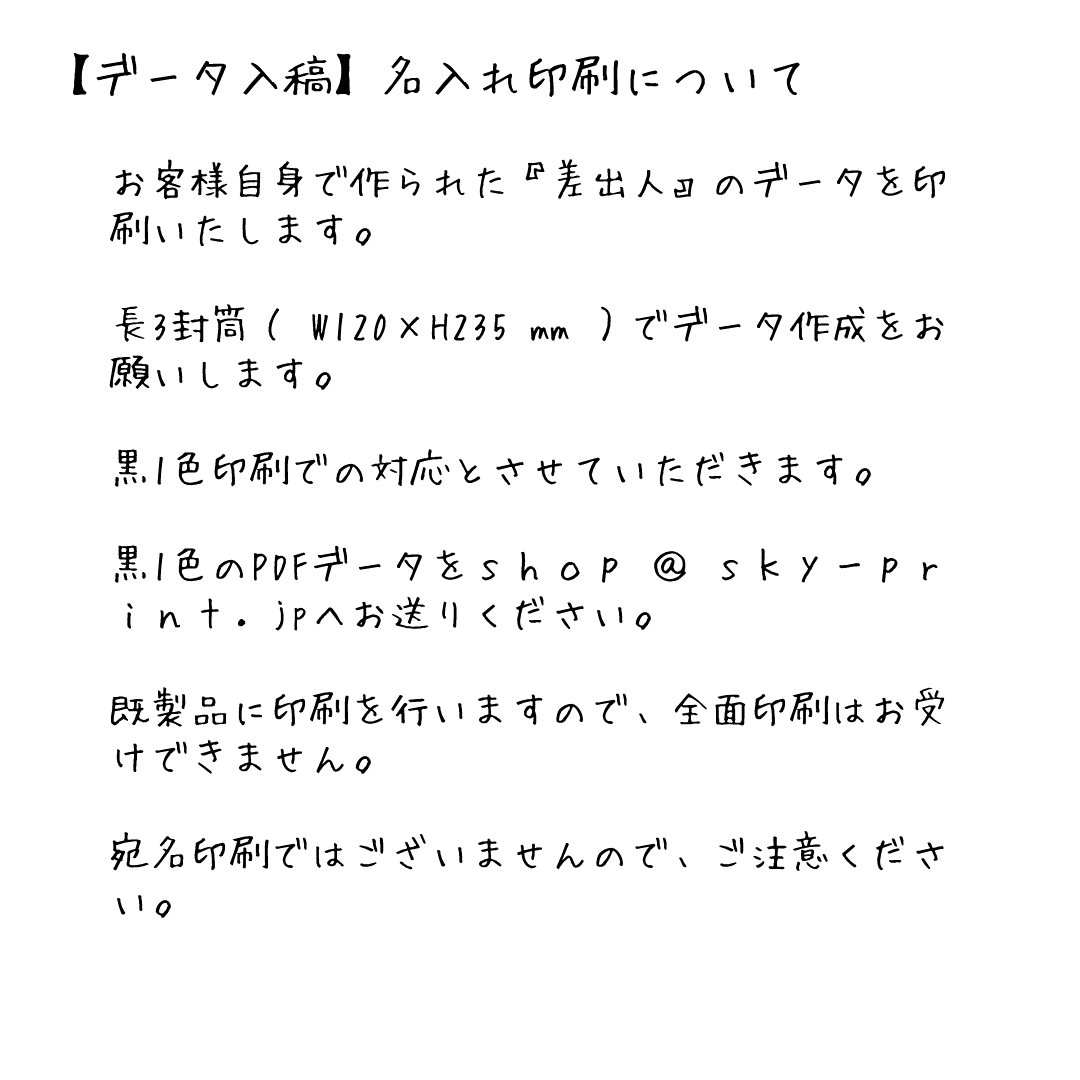 【データ入稿】名入れ印刷について
お客様自身で作られた『差出人』のデータを印
刷いたします。
長3封筒( W120×H235 mm )でデータ作成をお
願いします。
黒1色印刷での対応とさせていただきます。
黒1色のPDFデータをｓｈｏｐ＠ｓｋｙ－ｐｒ
ｉｎｔ．jpへお送りください。
既製品に印刷を行いますので、全面印刷はお受
けできません。
宛名印刷ではございませんので、ご注意くださ
い。